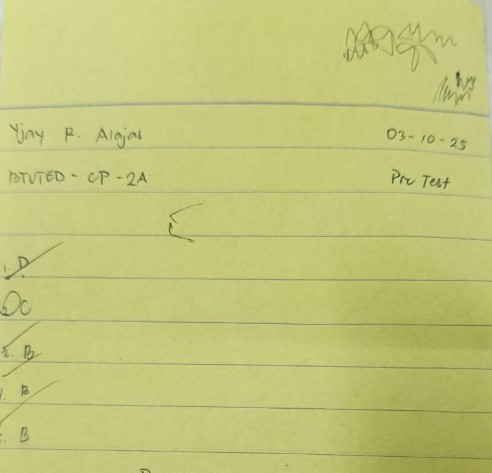 Yjay R. Alajas 03-10-25
BTVTED - CP - 2A Pre Test
1. D
2. C
3. B
4. B
5. B